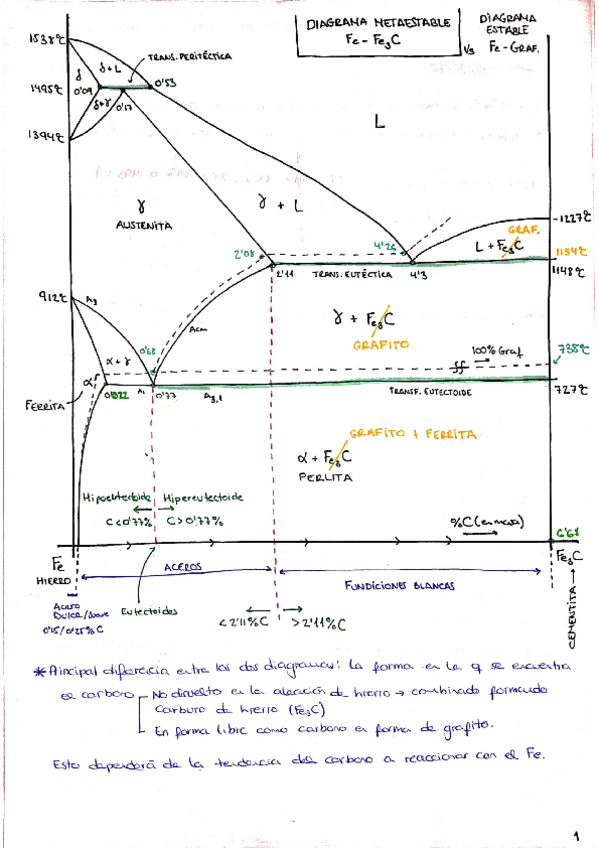 DIAGRAMA METAESTABLE
Fe - Fe₃C
V/s
DIAGRAMA
ESTABLE
Fe - GRAF.
1538ºC
1495ºC
1394ºC
912ºC
δ
δ+L
TRANS. PERITÉCTICA
0'09
0'53
δ+γ
0'17
L
γ
AUSTENITA
γ + L
2'08
4'26
2'11
TRANS. EUTÉCTICA
4'3
GRAF.
L + Fe₃C
1227ºC
1154ºC
1148ºC
A₃
Acm
γ + Fe₃C
GRAFITO
100% Graf
738ºC
727ºC
0'68
α + γ
α
FERRITA
0'022
A₁
0'77
A₃,₁
TRANSF. EUTECTOIDE
GRAFITO + FERRITA
α + Fe₃C
PERLITA
Hipoeutectoide
Hipereutectoide
C<0'77%
C>0'77%
%C (en masa)
6'67
Fe
HIERRO
Fe₃C
CEMENTITA
ACEROS
FUNDICIONES BLANCAS
Acero
Dulce/Suave
0'15/0'25%C
Eutectoides
<2'11%C
>2'11%C
* Principal diferencia entre los dos diagramas: la forma en la q se encuentra
el carbono
No disuelto en la aleación de hierro → combinado formando
Carburo de hierro (Fe₃C)
En forma libre como carbono en forma de grafito.
Esto dependerá de la tendencia del carbono a reaccionar con el Fe.
1